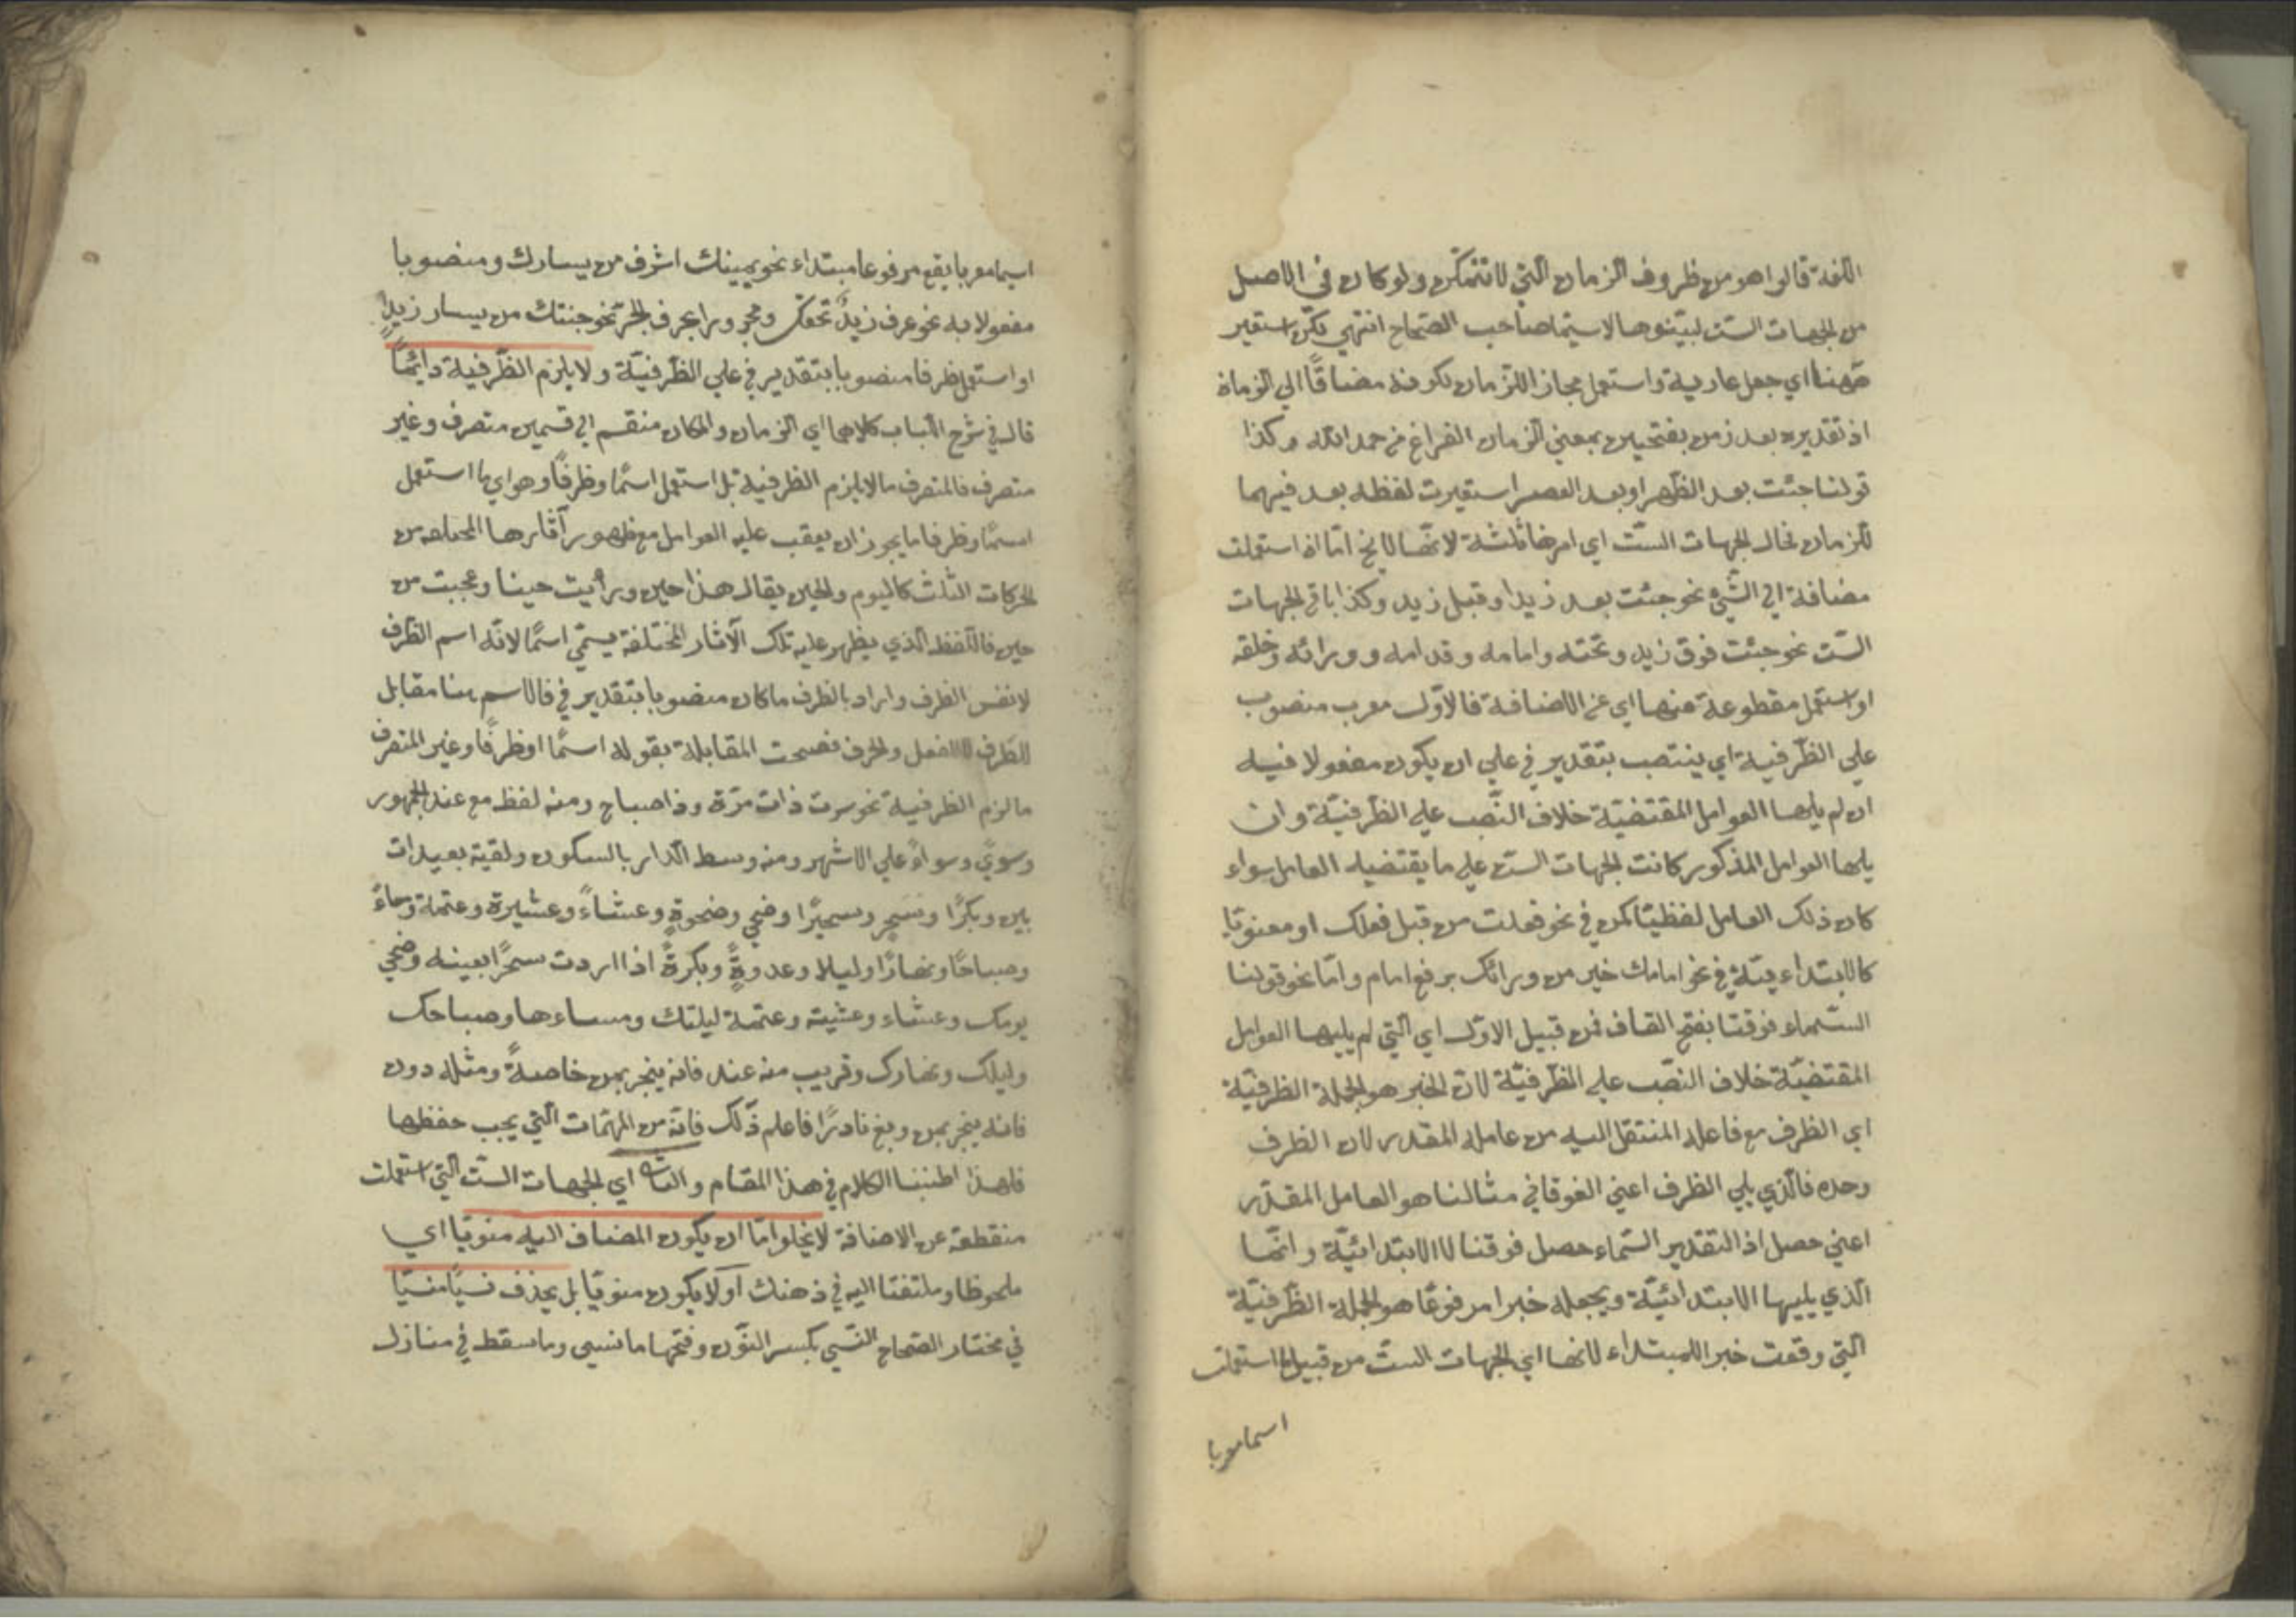 اللغة قالوا هو من ظروف الزمان التي لا تتمكن ولو كان في الاصل
من الجهات الست لبينوها لاسيما صاحب الصحاح انتهى لكن استعير
ههنا اي جعل عارية واستعمل مجازا للزمان لكونه مضافا الى الزمان
اذ تقديره بعد زمن بفتحيين بمعنى الزمان الفراغ من حمد الله وكذا
قولنا جئت بعد الظهر او بعد العصر استعيرت لفظه بعد فيهما
للزمان فحال الجهات الست اي امرها ثلثة لانها لا يخ اما ان استعملت
مضافة الى الشيء نحو جئت بعد زيد او قبل زيد وكذا باقي الجهات
الست نحو جئت فوق زيد وتحته وامامه وقدامه وورائه وخلفه
او استعمل مقطوعة عنها اي عن الاضافة فالاول معرب منصوب
على الظرفية اي ينتصب بتقدير في على ان يكون مفعولا فيه
ان لم يليها العوامل المقتضية خلاف النصب على الظرفية وان
يليها العوامل المذكور كانت الجهات الست على ما يقتضيه العامل سواء
كان ذلك العامل لفظيا كمن في نحو فعلت من قبل فعلك او معنويا
كالابتداءيتة في نحو امامك خير من ورائك برفع امام واما نحو قولنا
السماء فوقنا بفتح القاف فمن قبيل الاول اي التي لم يليها العوامل
المقتضية خلاف النصب على الظرفية لان الخبر هو الجملة الظرفية
اي الظرف مع فاعله المنتقل اليه من عامله المقدر لان الظرف
وحده فالذي يلي الظرف اعني الفوقا في مثالنا هو العامل المقدر
اعني حصل اذ التقدير السماء حصل فوقنا لا الابتدائية وانما
الذي يليها الابتدائية ويجعله خبرا مرفوعا هو الجملة الظرفية
التي وقعت خبرا للمبتداء لانها اي الجهات الست من قبيل ما استعملت
اسما معربا
اسما معربا يقع مرفوعا مبتداء نحو يمينك اشرف من يسارك ومنصوبا
مفعولا به نحو عرف زيد تحتك ومجرورا بحرف الجر نحو جئتك من يسار زيد
او استعمل ظرفا منصوبا بتقدير في على الظرفية ولا يلزم الظرفية دائما
قال في شرح اللباب كلاهما اي الزمان والمكان منقسم الى قسمين متصرف وغير
متصرف فالمتصرف مالا يلزم الظرفية بل استعمل اسما وظرفا وهو اي ما استعمل
اسما وظرفا ما يجوز ان يعقب عليه العوامل مع ظهور آثارها المختلفه من
الحركات الثلث كاليوم والحين يقال هذا حين ورأيت حينا وعجبت من
حين فاللفظ الذي يظهر عليه تلك الآثار المختلفة يسمى اسما لانه اسم الظرف
لا نفس الظرف واراد بالظرف ما كان منصوبا بتقدير في فالاسم هنا مقابل
الظرف لا الفعل والحرف فصحت المقابلة بقوله اسما او ظرفا وغير المتصرف
ما لزم الظرفية نحو سرت ذات مرة وذا صباح ومنه لفظ مع عند الجمهور
وسوى وسواء على الاشهر ومنه وسط الدار بالسكون ولقيته بعيدات
بين وبكرا وسحر وسحيرا وضحى وضحوة وعشاء وعشيرة وعتمة ومساء
وصباحا ونهارا وليلا وغدوة وبكرة اذا اردت سحرا بعينه وضحى
يومك وعشاء وعشيته وعتمة ليلتك ومساءها وصباحك
وليلك ونهارك وقريب منه عند فانه ينجر بمن خاصة ومثله دون
فانه ينجر بمن وبغ نادرا فاعلم ذلك فانه من المهمات التي يجب حفظها
فلهذا اطنبنا الكلام في هذا المقام والثانى اي الجهات الست التي استعملت
منقطعة عن الاضافة لا يخلو اما ان يكون المضاف اليه منويا اي
ملحوظا وملتفتا اليه في ذهنك او لا يكون منويا بل يحذف نسيا منسيا
في مختار الصحاح النسي بكسر النون وفتحها ما نسي وما سقط في منازل